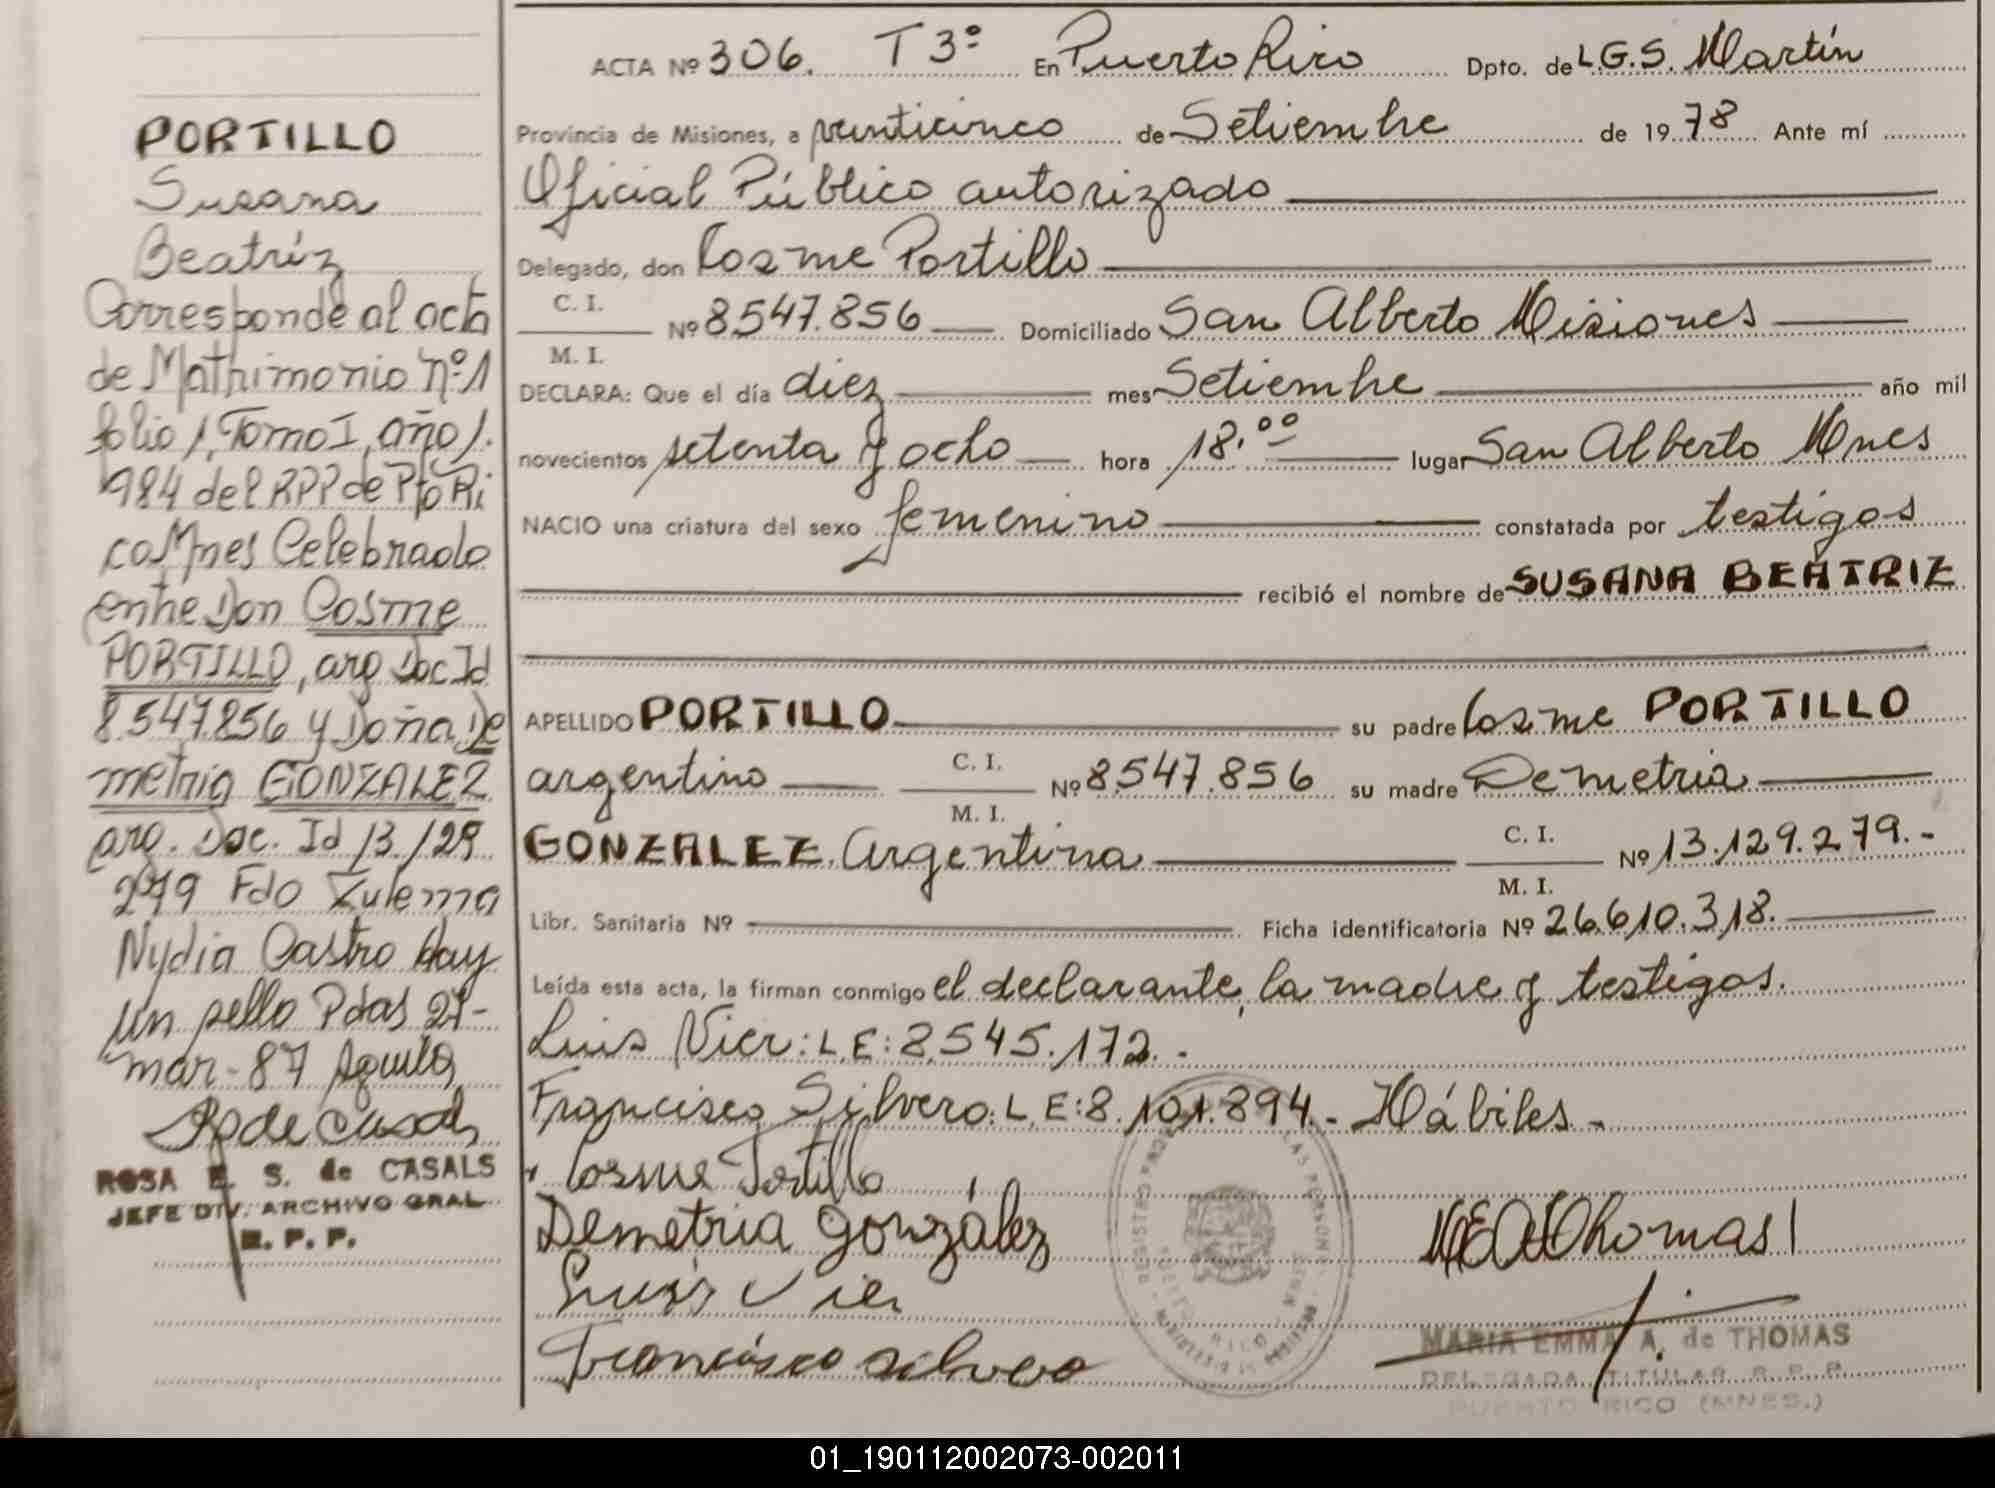 PORTILLO
Susana
Beatríz
Corresponde al acta
de Matrimonio nº 1
folio 1, Tomo I, año 1.
984 del RPP de Pto Ri
co Mnes Celebrado
entre Don Cosme
PORTILLO, arg Doc Id
8.547.856 y Doña De
metria GONZALEZ
arg. Doc. Id 13.129
279 Fdo Zulema
Nydia Castro Hay
un sello Pdas 27-
mar-87
ROSA E. S. de CASALS
JEFE DIV. ARCHIVO GRAL
R. P. P.
ACTA Nº 306. T 3º En Puerto Rico Dpto. de L.G.S. Martín
Provincia de Misiones, a veinticinco de Setiembre de 1978 Ante mí
Oficial Público autorizado
Delegado, don Cosme Portillo
C. I.
M. I.
Nº 8.547.856 Domiciliado San Alberto Misiones
DECLARA: Que el día diez mes Setiembre año mil
novecientos setenta y ocho hora 18.ºº lugar San Alberto Mnes
NACIO una criatura del sexo femenino constatada por testigos
recibió el nombre de SUSANA BEATRIZ
APELLIDO PORTILLO su padre Cosme PORTILLO
argentino C. I. M. I. Nº 8.547.856 su madre Demetria
GONZALEZ. Argentina C. I. M. I. Nº 13.129.279.-
Libr. Sanitaria Nº Ficha identificatoria Nº 26.610.318.
Leída esta acta, la firman conmigo el declarante, la madre y testigos.
Luis Vier: L.E: 8.545.172.-
Francisco Silvero: L.E: 8.101.894.- Hábiles.-
Cosme Portillo
Demetria González
Luis Vier
Francisco Silvero
MEA de Thomas
MARIA EMMA A. de THOMAS
DELEGADA TITULAR R.P.P.
PUERTO RICO (MNES.)
01_190112002073-002011